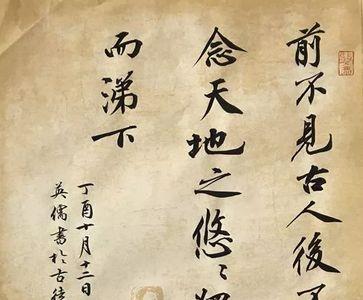 前不見古人後不
念天地之悠〻
而涕下
丁酉十月十二日
英儒書於古